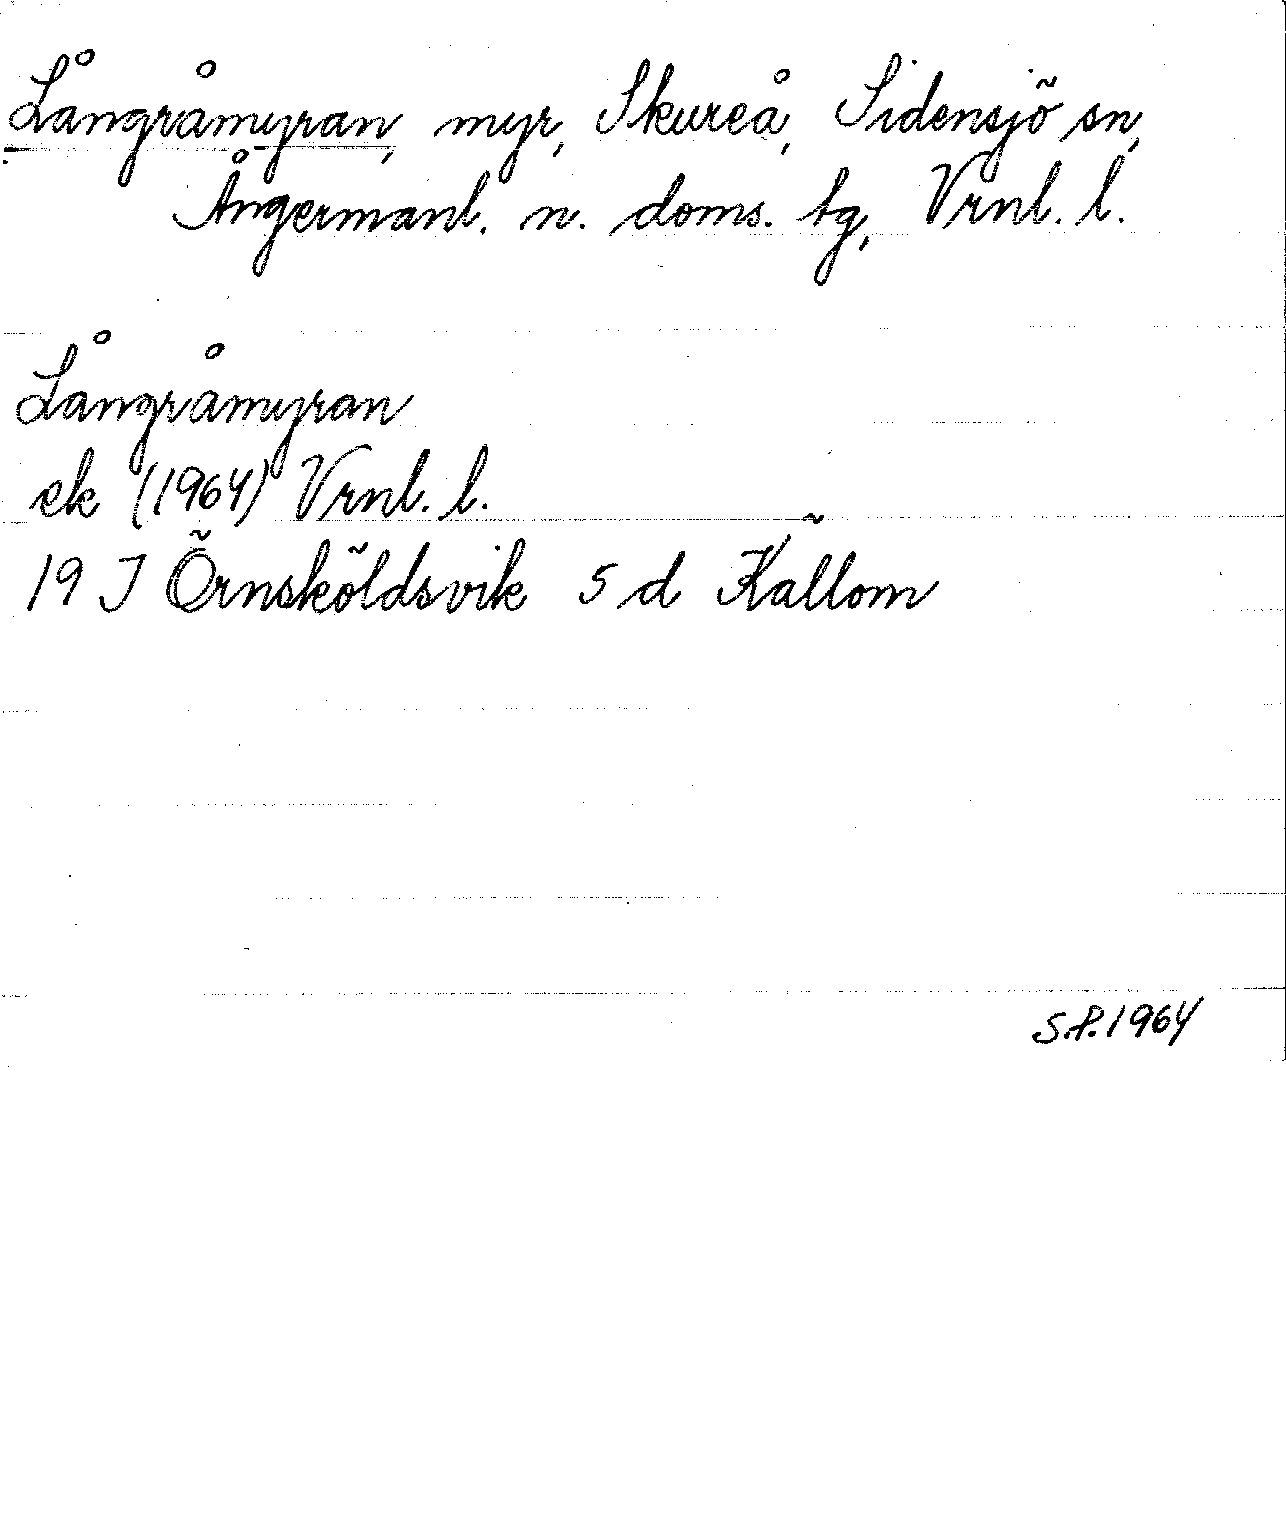 Långråmyran, myr, Skureå, Sidensjö sn,
Ångermanl. n. doms. tg, Vrnl. l.
Långråmyran
ek (1964) Vrnl. l.
19 J Örnsköldsvik 5 d Källom
S.P. 1964